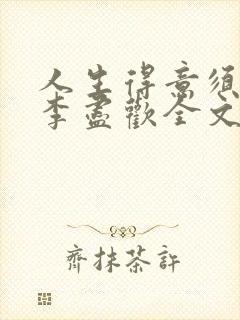 人生得意須
李盡歡全文
齊抹茶許